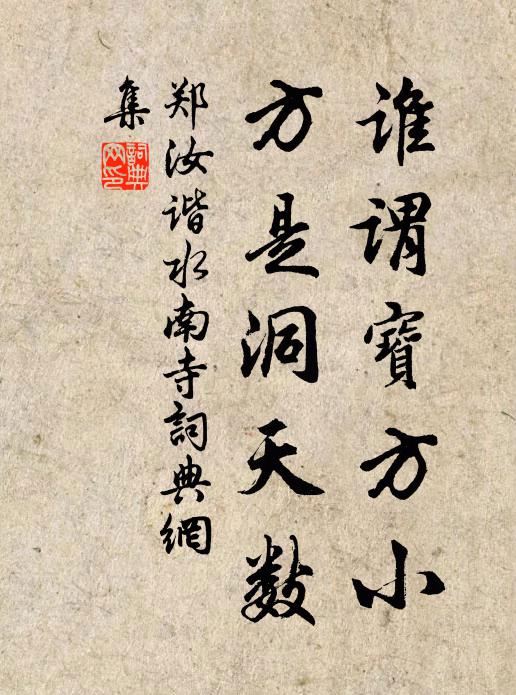 谁谓寶方小
方是洞天数
郑汝谐水南寺詞典網
集
詞典
网印